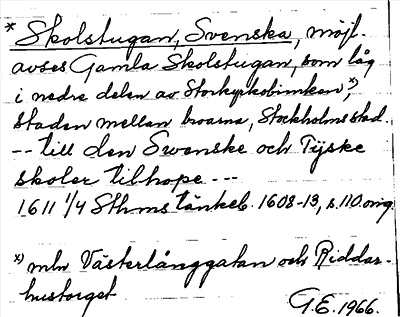 * Skolstugan, Svenska, möjl.
avses Gamla Skolstugan, som låg
i nedre delen av Storkyrkobrinken x),
staden mellan broarna, Stockholms stad.
-- till den Swenske och Tyske
skoler tilhope ---
1611 1/4 Sthms tänkeb. 1608-13, s. 110. orig
x) mln Västerlånggatan och Riddar-
hustorget
G.E. 1966.